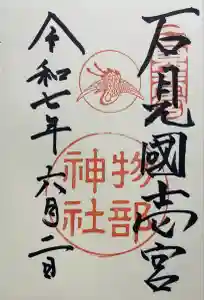 石見國一宮
令和七年六月二日
物部
神社